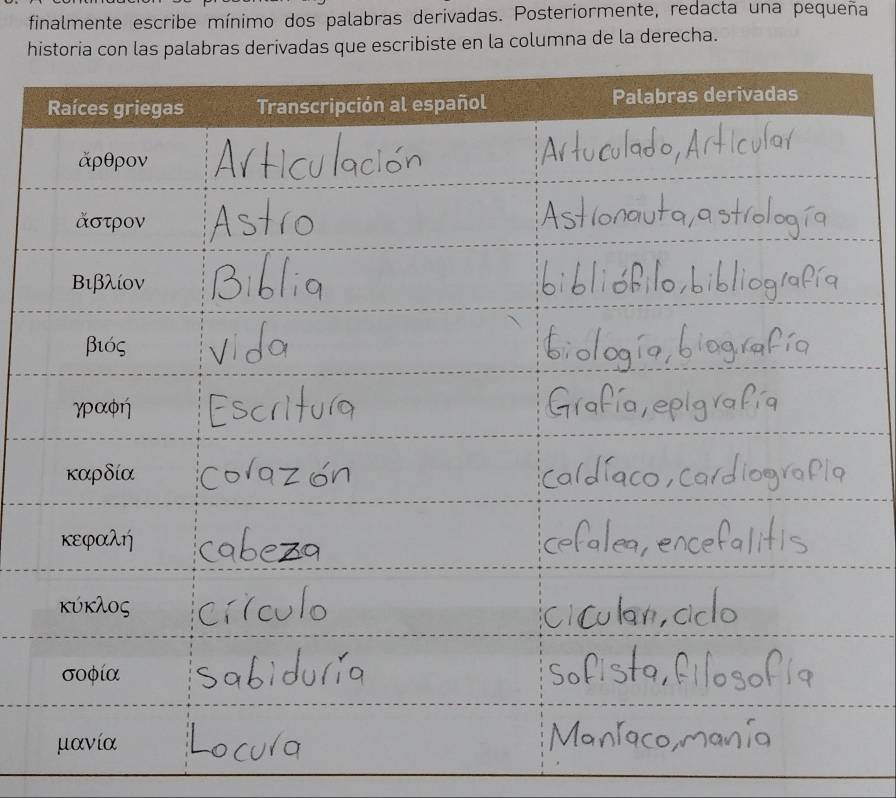 finalmente escribe mínimo dos palabras derivadas. Posteriormente, redacta una pequeña
historia con las palabras derivadas que escribiste en la columna de la derecha.
Raíces griegas Transcripción al español Palabras derivadas
ἄρθρον Articulación Artuculado, Articular
ἄστρον Astro Astronauta, astrología
Βιβλίον Biblia bibliófilo, bibliografía
βιός vida biología, biografía
γραφή Escritura Grafía, epigrafía
καρδία corazón cardíaco, cardiografía
κεφαλή cabeza cefalea, encefalitis
κύκλος círculo ciclo
σοφία sabiduría sofista, filosofía
μανία Locura Maníaco, manía